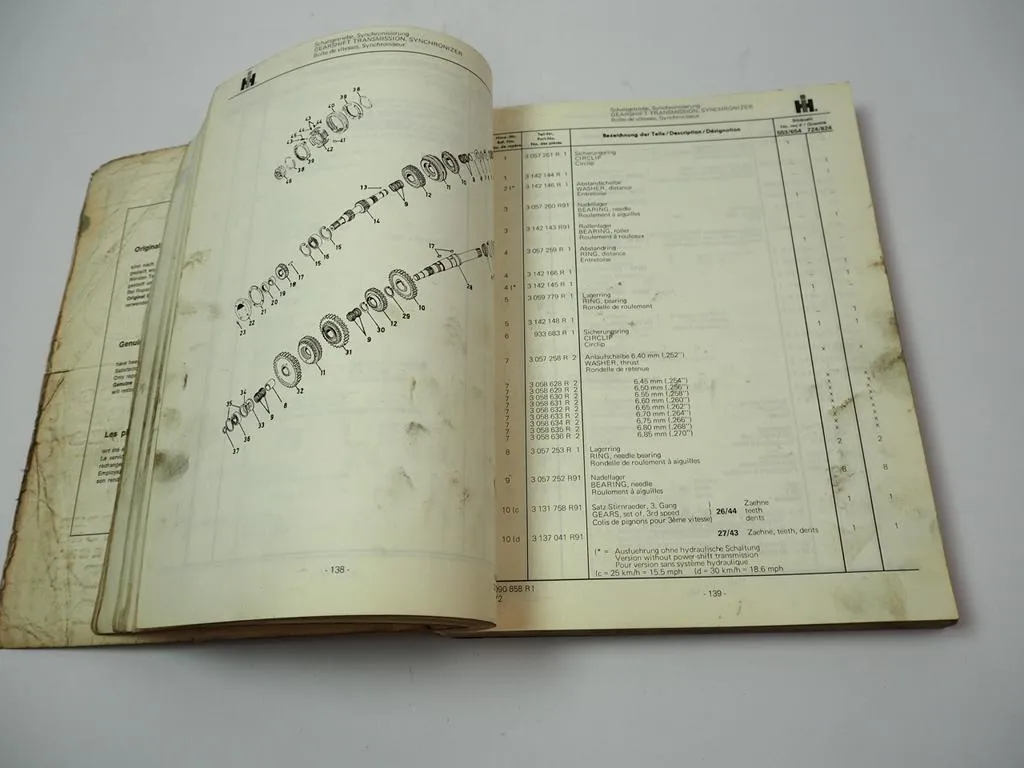 Original
Genuin
Les pi
Schaltgetriebe, Synchronisierung
GEARSHIFT TRANSMISSION, SYNCHRONIZER
Boîte de vitesses, Synchroniseur
IH
- 138 -
Schaltgetriebe, Synchronisierung
GEARSHIFT TRANSMISSION, SYNCHRONIZER
Boîte de vitesses, Synchroniseur
IH
Bezeichnung der Teile / Description / Désignation
1 3 057 261 R 1 Sicherungsring
CIRCLIP
Circlip
1 3 142 144 R 1
2 (* 3 142 146 R 1 Abstandscheibe
WASHER, distance
Entretoise
3 3 057 260 R91 Nadellager
BEARING, needle
Roulement à aiguilles
3 3 142 143 R91 Rollenlager
BEARING, roller
Roulement à rouleaux
4 3 057 259 R 1 Abstandring
RING, distance
Entretoise
4 3 142 166 R 1
4 (* 3 142 145 R 1
5 3 059 779 R 1 Lagerring
RING, bearing
Rondelle de roulement
5 3 142 148 R 1
6 933 683 R 1 Sicherungsring
CIRCLIP
Circlip
7 3 057 258 R 2 Anlaufscheibe 6,40 mm (.252")
WASHER, thrust
Rondelle de retenue
7 3 058 628 R 2 6,45 mm (.254")
7 3 058 629 R 2 6,50 mm (.256")
7 3 058 630 R 2 6,55 mm (.258")
7 3 058 631 R 2 6,60 mm (.260")
7 3 058 632 R 2 6,65 mm (.262")
7 3 058 633 R 2 6,70 mm (.264")
7 3 058 634 R 2 6,75 mm (.266")
7 3 058 635 R 2 6,80 mm (.268")
7 3 058 636 R 2 6,85 mm (.270")
8 3 057 253 R 1 Lagerring 2 2
RING, needle bearing
Rondelle de roulement à aiguilles
9 3 057 252 R91 Nadellager 8 8
BEARING, needle
Roulement à aiguilles
10 (c 3 131 758 R91 Satz-Stirnraeder, 3. Gang Zaehne 1 1
GEARS, set of, 3rd speed 26/44 teeth
Colis de pignons pour 3ème vitesse) dents
10 (d 3 137 041 R91 27/43 Zaehne, teeth, dents 1 1
(* = Ausfuehrung ohne hydraulische Schaltung
Version without power-shift transmission
Pour version sans système hydraulique
(c = 25 km/h = 15.5 mph (d = 30 km/h = 18.6 mph
090 858 R1
/2
- 139 -